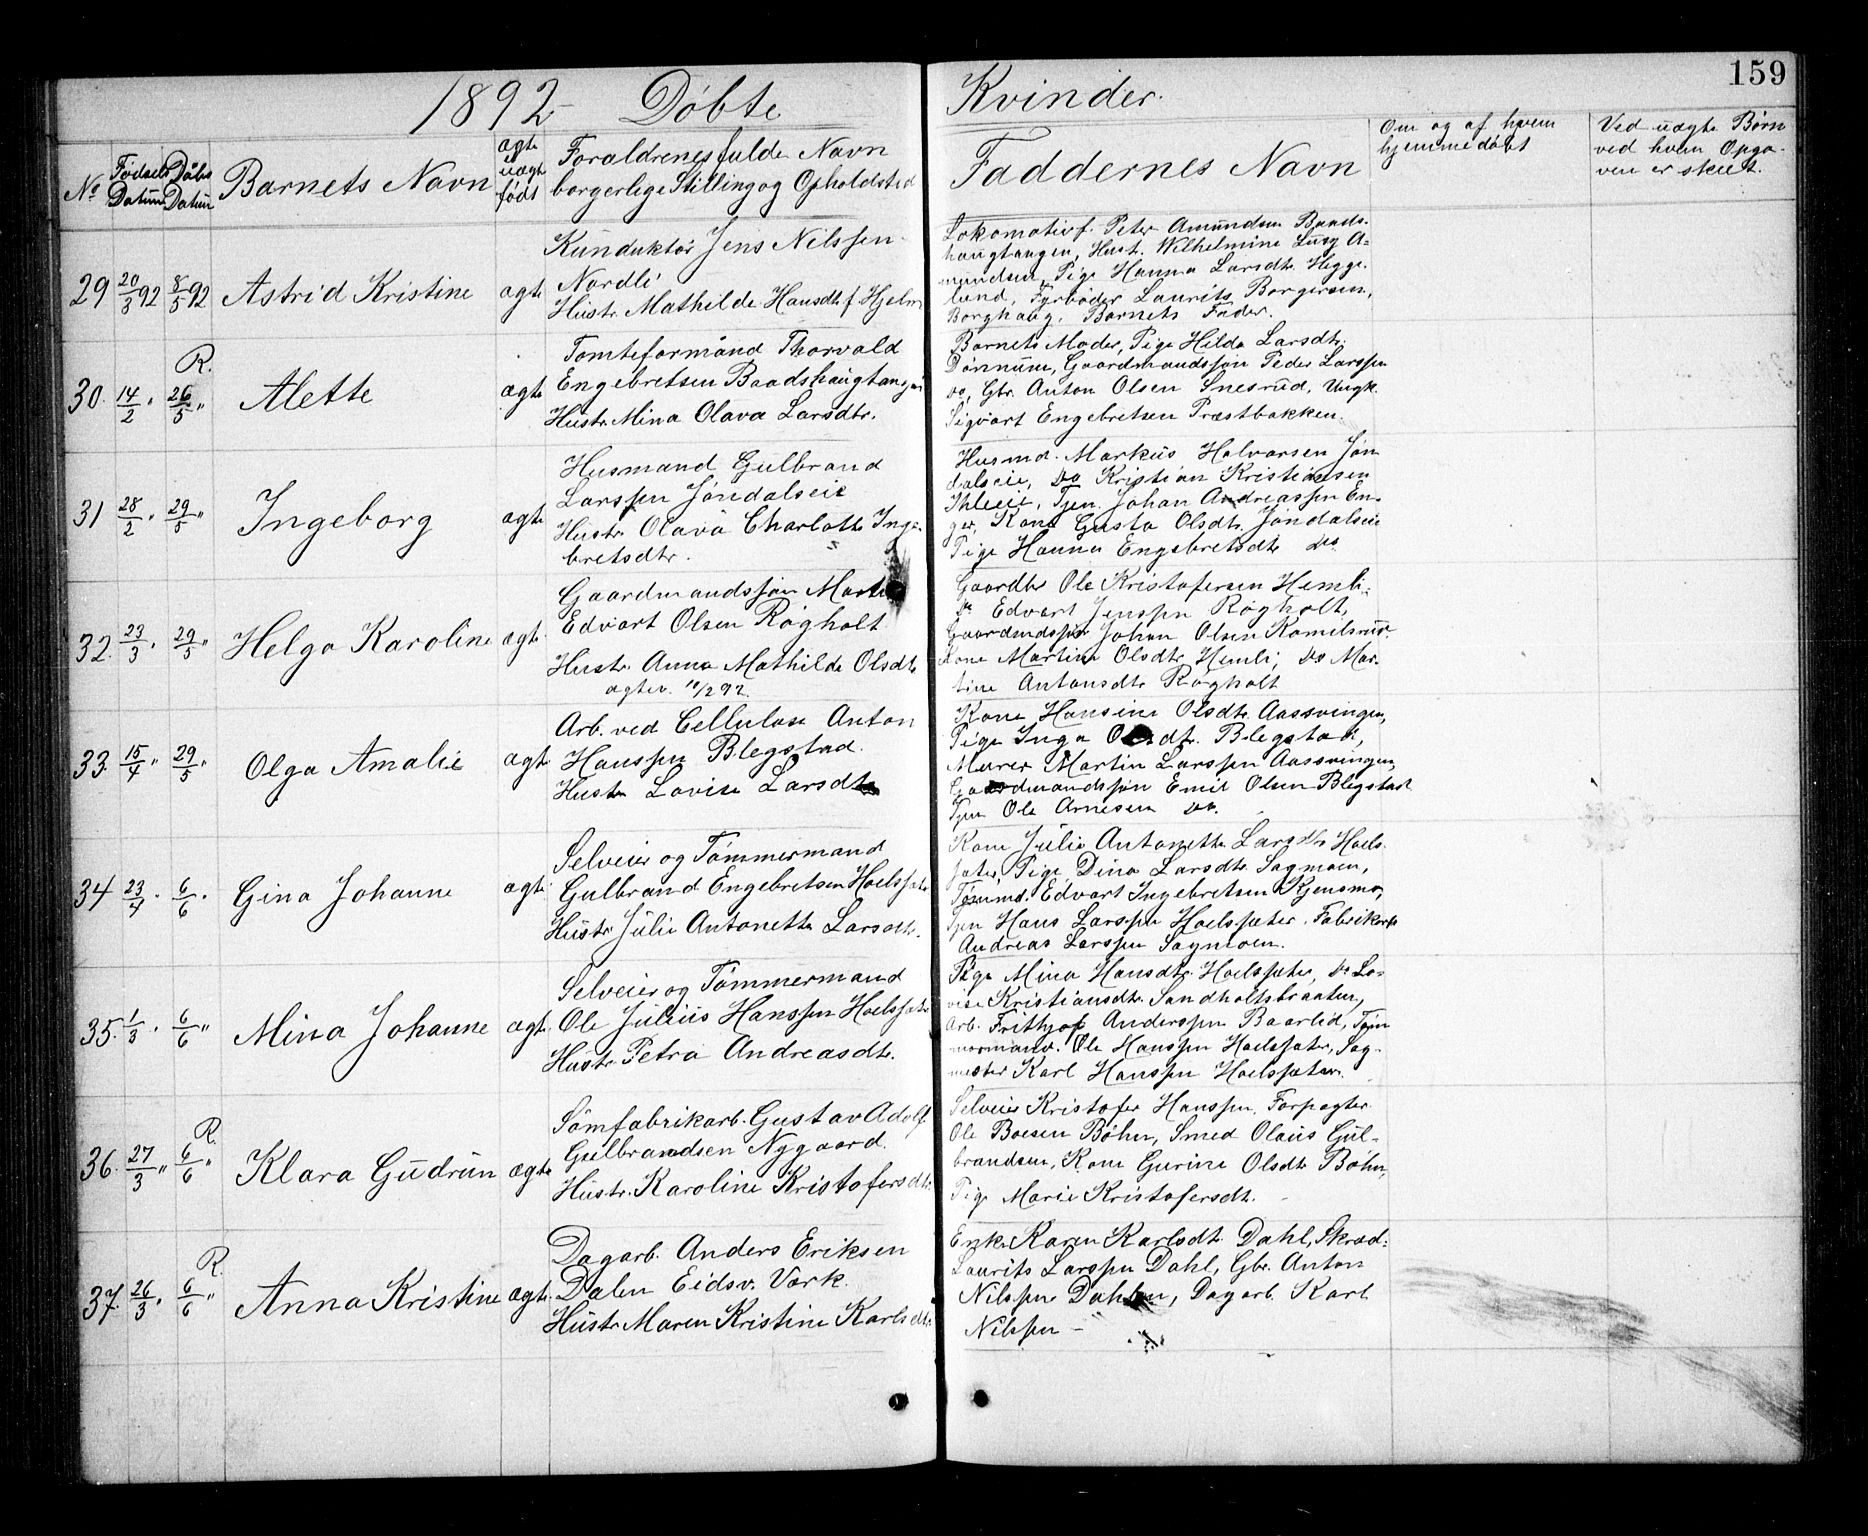 159
1892 Döbte Kvinder.
No
Födsels Datum
Döbs Datum
Barnets Navn
ægte uægte født
Forældrenes fulde Navn
borgerlige Stilling og Opholdsted
Faddernes Navn
Om og af hvem
hjemmedöbt
Ved uægte Børn
ved hvem Opga-
ven er skeet.
29 20/3 92 8/5 92 Astrid Kristine ægte
Kunduktör Jens Nilssen
Nordli
Hustr. Mathilde Hansdtr f. Hjelm
Lokomotivf. Peter Amundsen Baads-
haugtangen, Hust. Wilhelmine Lusy A-
mundsen, Pige Hanna Larsdtr Hegge-
lund, Fyrböder Laurits Borgersen,
Borghaug, Barnets Fader.
30. 14/2 " R. 26/5 " Alette ægte
Tomteformand Thorvald
Engebretsen Baadshaugtangen
Hustr. Mina Olava Larsdtr.
Barnets Moder, Pige Hilda Larsdtr.
Dönnum, Gaardmandssøn Peder Larssen
do, Gbr. Anton Olsen Snesrud, Ungk.
Sigvart Engebretsen Præstbakken.
31 28/2 " 29/5 " Ingeborg ægte
Husmand Gulbrand
Larssen Jøndalseie
Hustr. Olava Charlotte Inge-
bretsdtr.
Husmd. Markus Halvorsen Jøn
dalseie, do Kristian Kristiansen
Ihleeie, Tjen. Johan Andreassen En-
ger, Kone Gusta Olsdtr. Jøndalseie
Pige Hanna Engebretsdtr do
32. 23/3 " 29/5 " Helga Karoline ægte
Gaardmandssøn Martin
Edvart Olsen Røgholt
Hustr. Anna Mathilde Olsdtr
ægtev. 10/2 92.
Gaardbr Ole Kristofersen Hemli-
do Edvart Jenssen Røgholt,
Gaardmdssøn Johan Olsen Komelsrud
Kone Martine Olsdtr Hemli, do Mar-
tine Antonsdtr Røgholt
33. 15/4 " 29/5 " Olga Amalie ægte
Arb. ved Cellulose Anton
Hanssen Blegstad.
Hustr Lovise Larsdtr
Kone Hansine Olsdtr Aassvingen,
Pige Inga Olsdtr. Blegstad,
Murer Martin Larssen Aassvingen,
Gaardmandssøn Emil Olsen Blegstad
Tjen Ole Arnesen do.
34 23/4 " 6/6 " Gina Johanne ægte
Selveier og Tømmermand
Gulbrand Engebretsen Hoelssæter
Hustr. Julie Antonette Larsdtr.
Kone Julie Antonette Larsdtr Hoels-
sæter, Pige Dina Larsdtr. Sagmoen,
Tømmd. Edvart Ingebretsen Kjensmo,
Tjen Hans Larssen Hoelssæter. Fabrikarb
Andreas Larssen Sagmoen.
35. 1/3 " 6/6 " Mina Johanne ægte
Selveier og Tømmermand
Ole Julius Hanssen Hoelssæter
Hustr. Petra Andreasdtr.
Pige Mina Hansdtr. Hoelssæter, do Lo-
vise Kristiansdtr. Sandholtsbraaten,
Arb. Frithjof Anderssen Baarlid, Tøm
mermand. Ole Hanssen Hoelssæter, Sag-
mester Karl Hanssen Hoelssæter.
36. 27/3 " R. 6/6 " Klara Gudrun ægte
Sömfabrikarb. Gustav Adolf
Gulbrandsen Nygaard.
Hustr. Karoline Kristofersdtr.
Selveier Kristofer Hanssen. Forpagter
Ole Boesen Böhn, Smed Olaus Gul-
brandsen, Kone Gurine Olsdtr Böhn,
Pige Marie Kristofersdtr.
37. 26/3 " R. 6/6 " Anna Kristine ægte
Dagarb. Anders Eriksen
Dalen Eidsv. Værk.
Hustr. Maren Kristine Karlsdtr.
Enke Karen Karlsdtr Dahl, Skræd.
Laurits Larssen Dahl, Gbr. Anton
Nilssen Dahlen, Dagarb. Karl
Nilssen